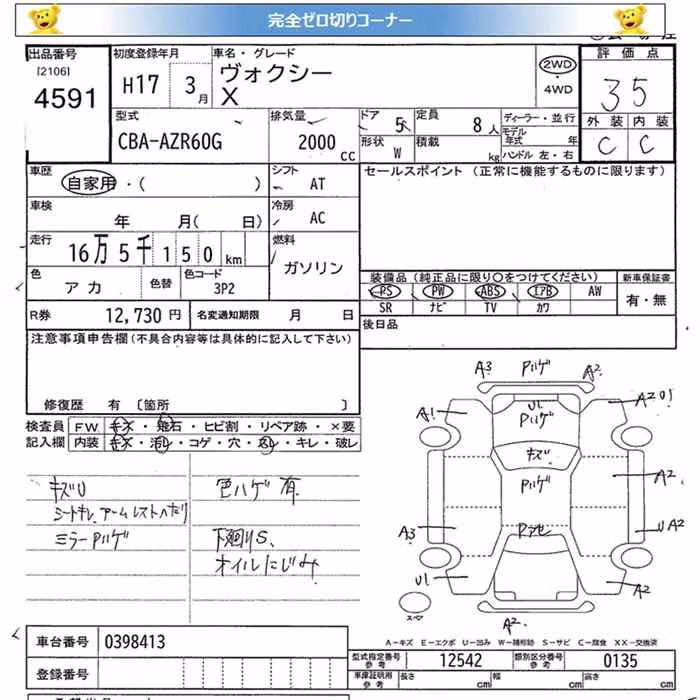 完全ゼロ切りコーナー
出品番号 初度登録年月 車名・グレード 評価点
[2106]
4591 H17 3月 ヴォクシー X 2WD ・ 4WD 35
外装 内装
C C
型式 排気量 ドア 定員 ディーラー・並行
CBA-AZR60G 2000 cc 5 8人 モデル年式 年
形状 W 積載 kg ハンドル 左・右
車歴 自家用・( ) シフト AT セールスポイント (正常に機能するものに限ります)
車検 年 月( 日) 冷房 AC
走行 16万5千150km 燃料 ガソリン
装備品 (純正品に限り○をつけてください) 新車保証書
色 アカ 色替 色コード 3P2 PS PW ABS エアB AW 有・無
SR ナビ TV カワ
R券 12,730 円 名変通知期限 月 日 後日品
注意事項申告欄 (不具合内容等は具体的に記入して下さい)
修復歴 有 〔箇所 〕
検査員 FW キズ・飛石・ヒビ割・リペア跡・×要
記入欄 内装 キズ・汚れ・コゲ・穴・スレ・キレ・破レ
キズU 色ハゲ有
シートキレ、アームレストへたり
ミラーPハゲ 下廻りS、
オイルにじみ
A3 Pハゲ A2
A1 U1 Pハゲ A2 U1
キズ
Pハゲ A2
A3 Pアセ UA2
U1 A2
スペア A2
A-キズ E-エクボ U-凹み W-補修跡 S-サビ C-腐食 XX-交換済
車台番号 0398413 型式指定番号 参考 12542 類別区分番号 参考 0135
登録番号 車庫証明用 参考 長さ cm 幅 cm 高さ cm